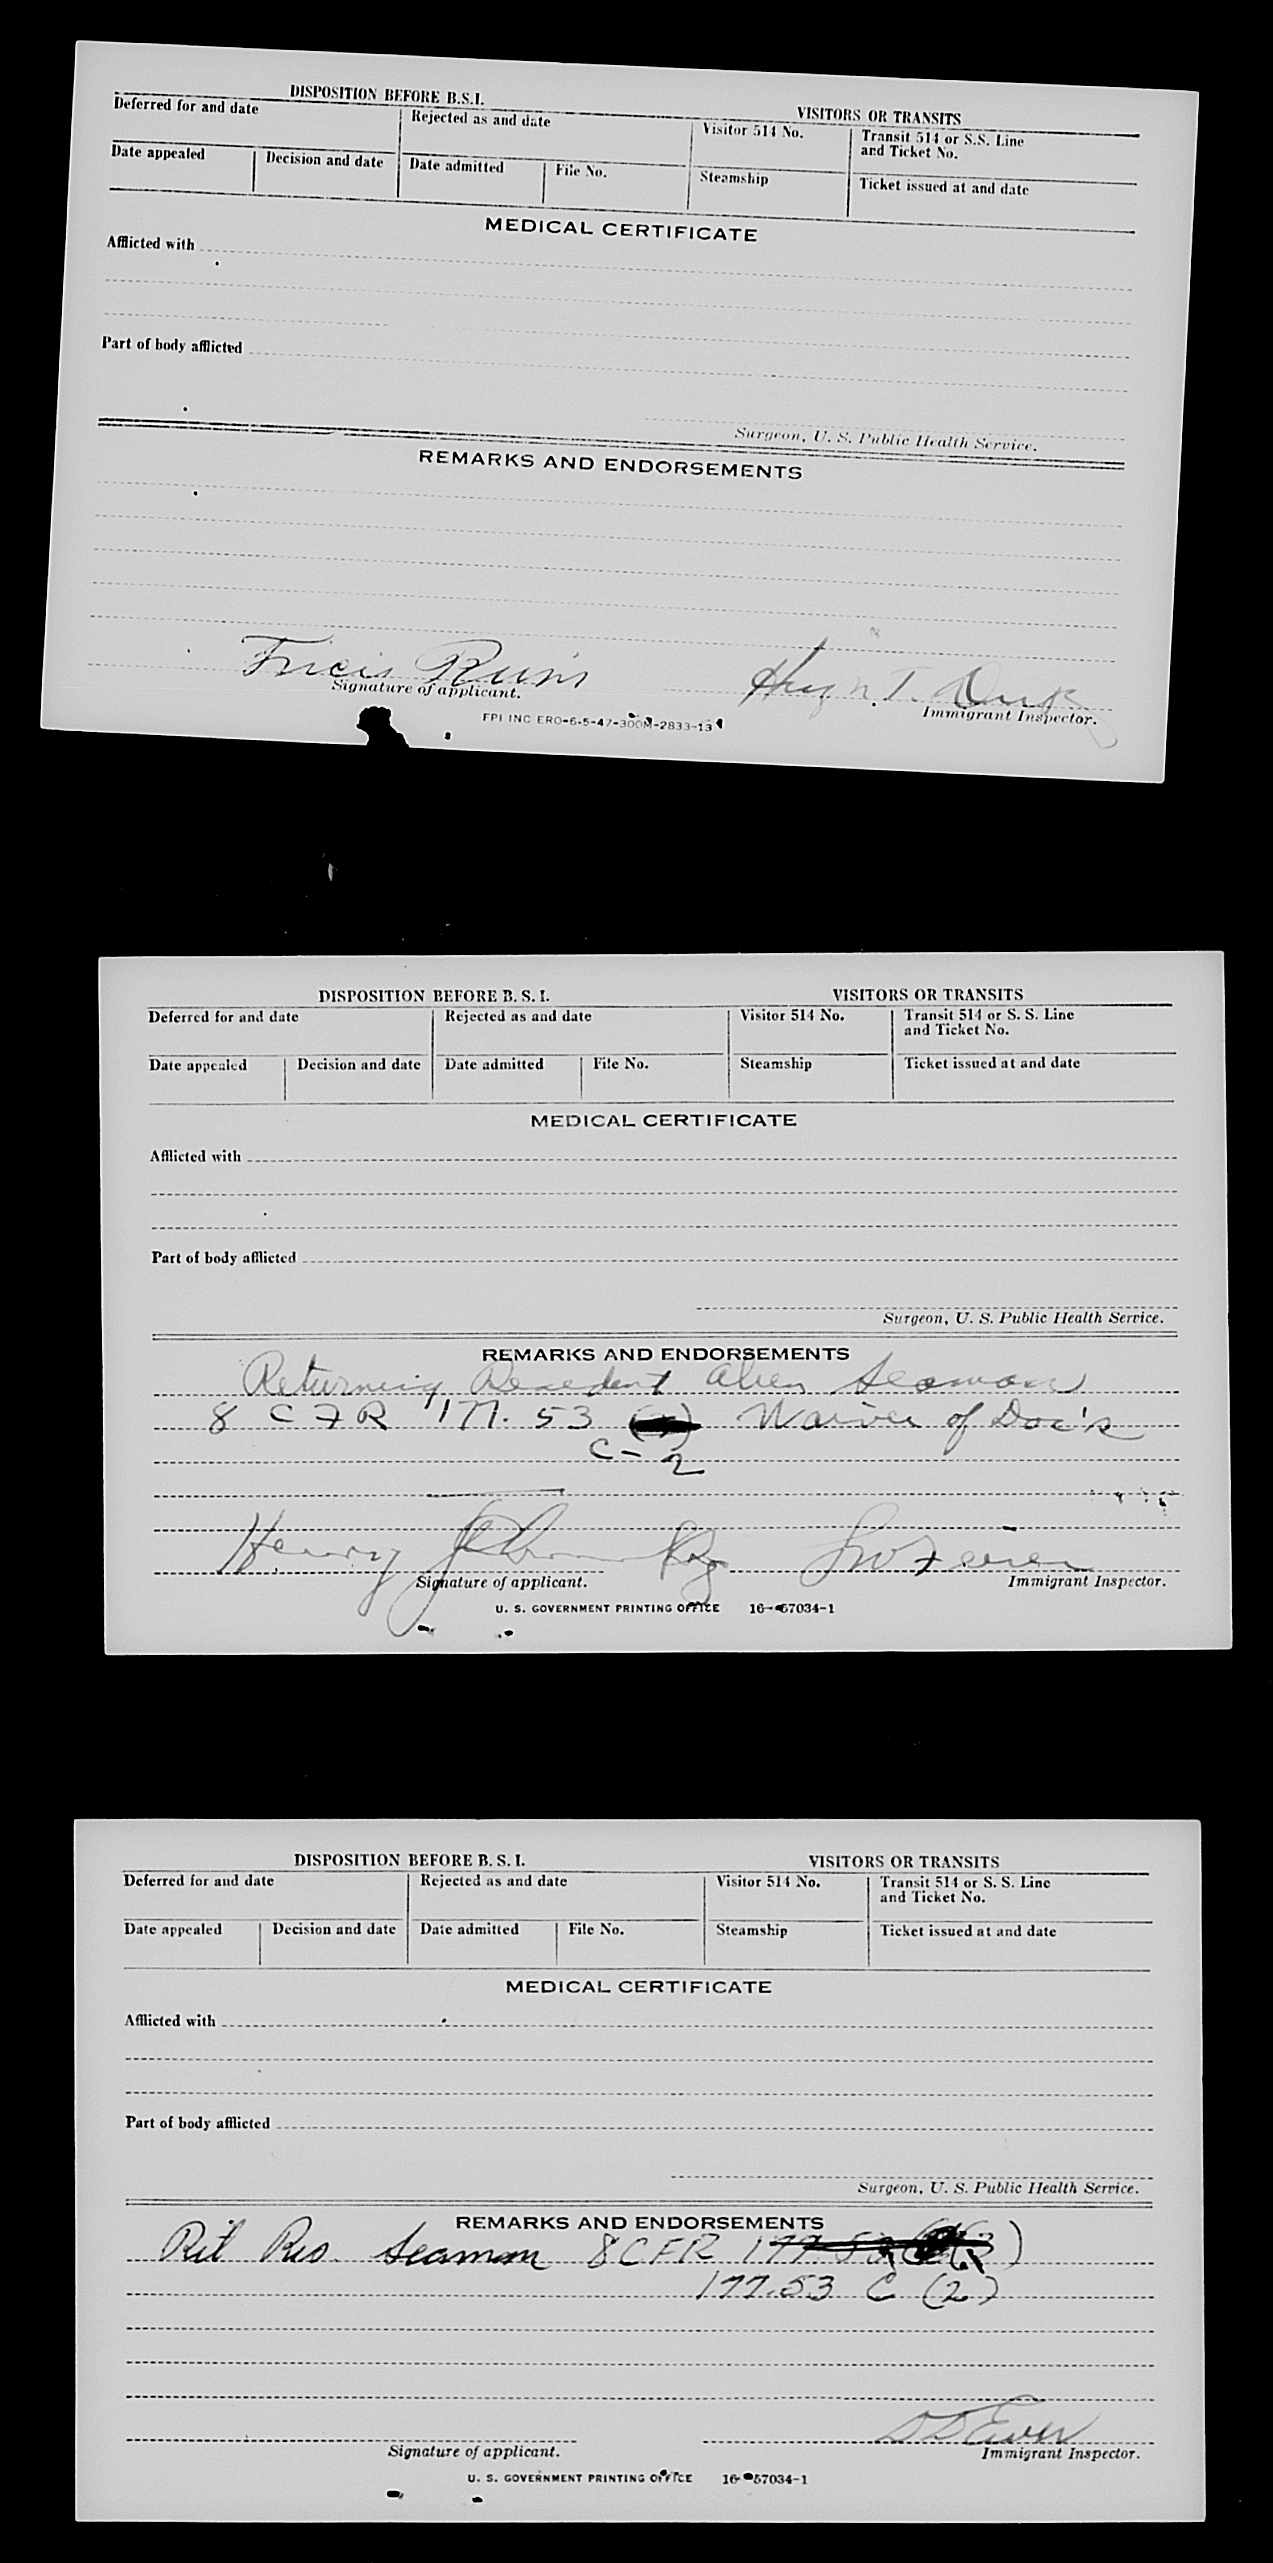 DISPOSITION BEFORE B.S.I. VISITORS OR TRANSITS
Deferred for and date Rejected as and date Visitor 514 No. Transit 514 or S.S. Line
and Ticket No.
Date appealed Decision and date Date admitted File No. Steamship Ticket issued at and date
MEDICAL CERTIFICATE
Afflicted with
Part of body afflicted
Surgeon, U. S. Public Health Service.
REMARKS AND ENDORSEMENTS
Signature of applicant. Immigrant Inspector.
FPI INC ERO-6-5-47-300M-2833-13
DISPOSITION BEFORE B. S. I. VISITORS OR TRANSITS
Deferred for and date Rejected as and date Visitor 514 No. Transit 514 or S. S. Line
and Ticket No.
Date appealed Decision and date Date admitted File No. Steamship Ticket issued at and date
MEDICAL CERTIFICATE
Afflicted with
Part of body afflicted
Surgeon, U. S. Public Health Service.
REMARKS AND ENDORSEMENTS
Returning Resedent alien Seaman
8 CFR 177.53 Waiver of Doc's
C-2
Henry
Signature of applicant. Immigrant Inspector.
U. S. GOVERNMENT PRINTING OFFICE 16-57034-1
DISPOSITION BEFORE B. S. I. VISITORS OR TRANSITS
Deferred for and date Rejected as and date Visitor 514 No. Transit 514 or S. S. Line
and Ticket No.
Date appealed Decision and date Date admitted File No. Steamship Ticket issued at and date
MEDICAL CERTIFICATE
Afflicted with
Part of body afflicted
Surgeon, U. S. Public Health Service.
REMARKS AND ENDORSEMENTS
Ret Res. Seaman 8CFR
177.53 C (2)
Signature of applicant. Immigrant Inspector.
U. S. GOVERNMENT PRINTING OFFICE 16-57034-1